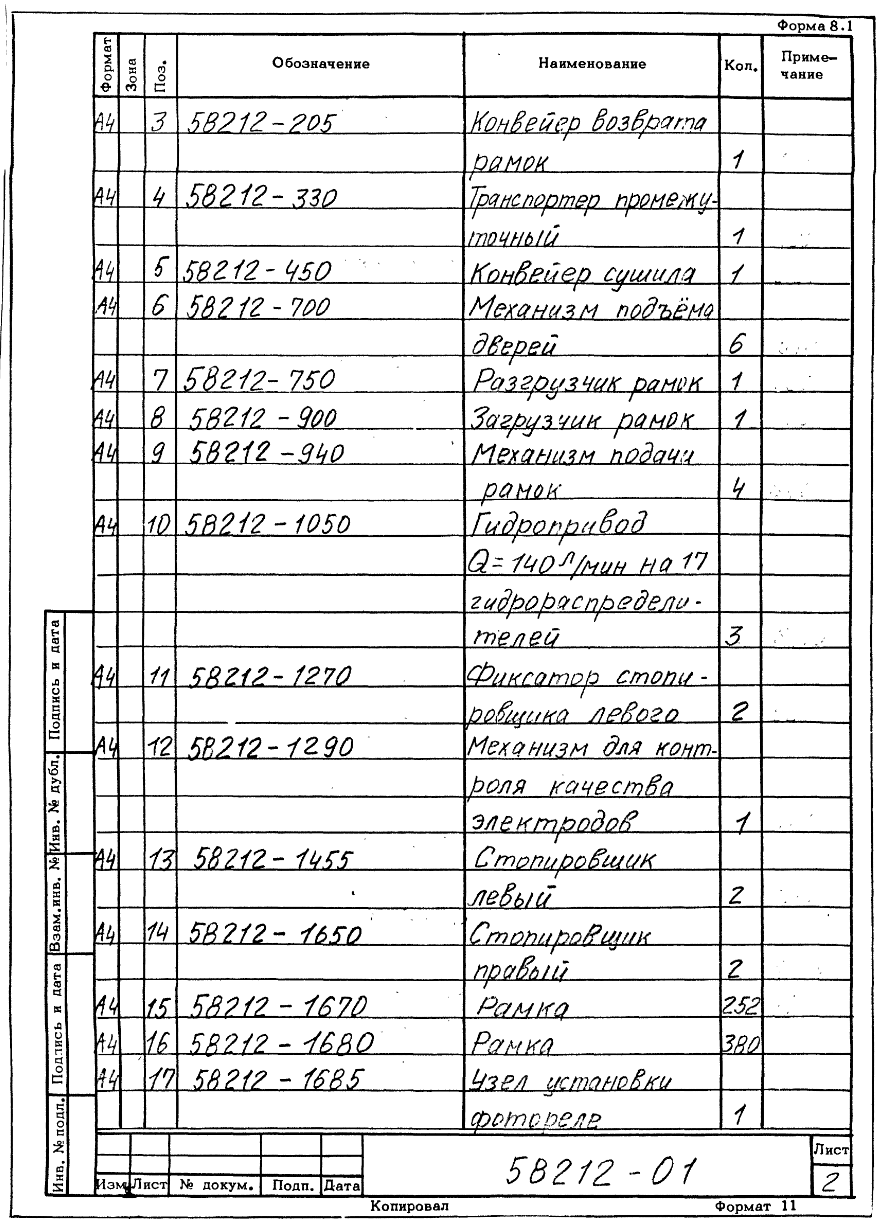 Форма 8.1
Формат Зона Поз. Обозначение Наименование Кол. Приме-
чание
А4 3 58212-205 Конвейер возврата
рамок 1
А4 4 58212-330 Транспортер промежу-
точный 1
А4 5 58212-450 Конвейер сушила 1
А4 6 58212-700 Механизм подъёма
дверей 6
А4 7 58212-750 Разгрузчик рамок 1
А4 8 58212-900 Загрузчик рамок 1
А4 9 58212-940 Механизм подачи
рамок 4
А4 10 58212-1050 Гидропривод
Q=140 л/мин на 17
гидрораспредели-
телей 3
А4 11 58212-1270 Фиксатор стопи-
ровщика левого 2
А4 12 58212-1290 Механизм для конт-
роля качества
электродов 1
А4 13 58212-1455 Стопировщик
левый 2
А4 14 58212-1650 Стопировщик
правый 2
А4 15 58212-1670 Рамка 252
А4 16 58212-1680 Рамка 380
А4 17 58212-1685 Узел установки
фотореле 1
Подпись и дата
Инв. № дубл.
Взам.инв. №
Подпись и дата
Инв. № подл.
Изм Лист № докум. Подп. Дата
58212-01
Лист
2
Копировал Формат 11